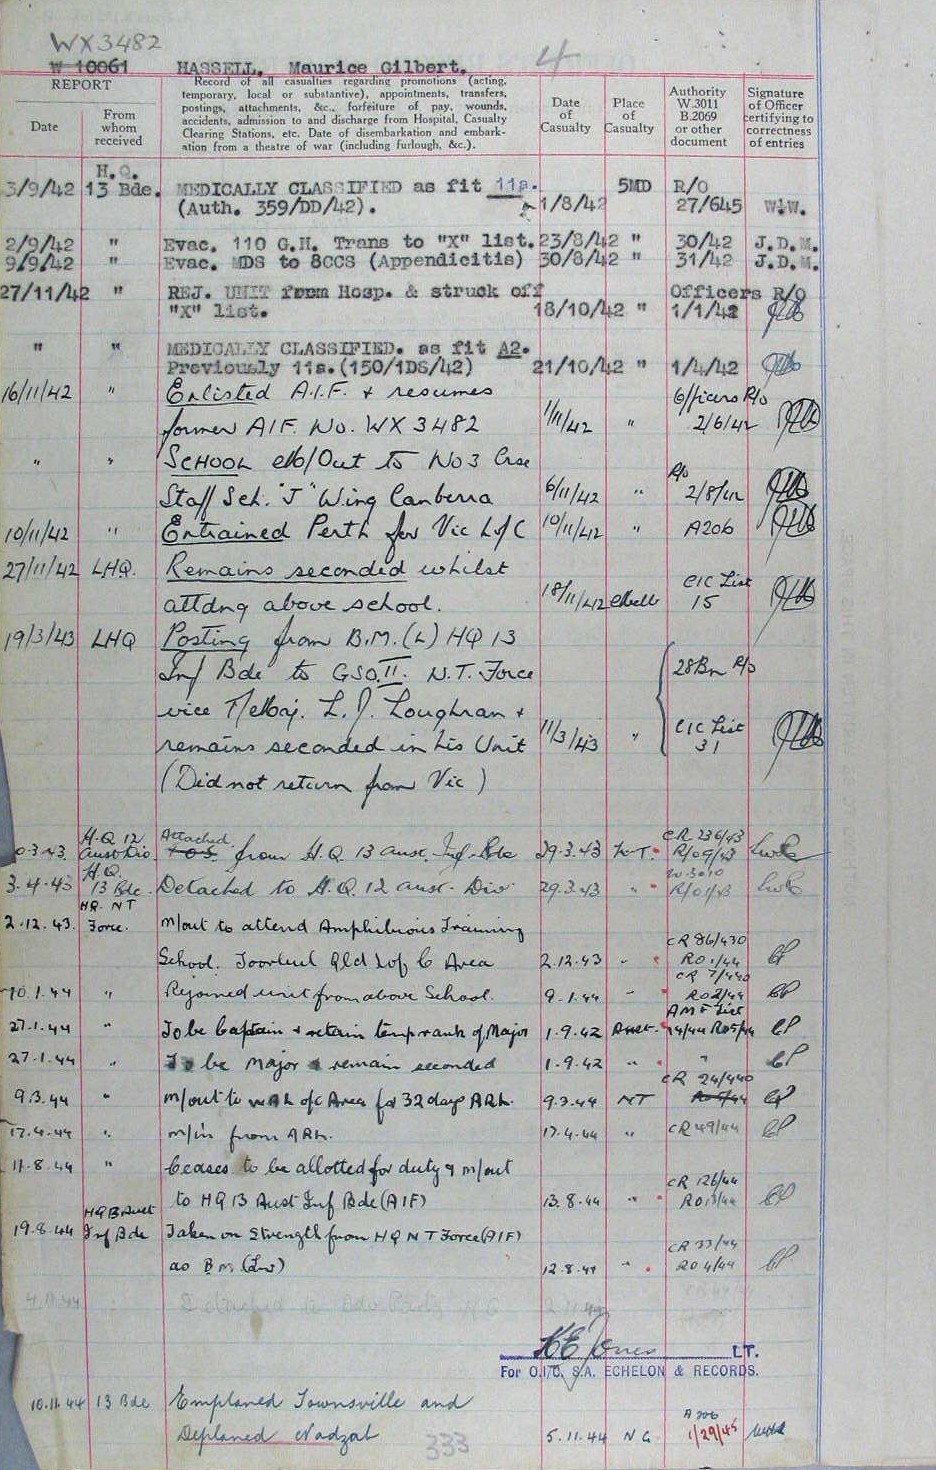 WX3482
W 10061 HASSELL, Maurice Gilbert. 4
REPORT
Date
From whom received
Record of all casualties regarding promotions (acting,
temporary, local or substantive), appointments, transfers,
postings, attachments, &c., forfeiture of pay, wounds,
accidents, admission to and discharge from Hospital, Casualty
Clearing Stations, etc. Date of disembarkation and embark-
ation from a theatre of war (including furlough, &c.).
Date of Casualty
Place of Casualty
Authority W.3011 B.2069 or other document
Signature of Officer certifying to correctness of entries
H.Q.
3/9/42 13 Bde. MEDICALLY CLASSIFIED as fit 11a. 5MD R/O
(Auth. 359/DD/42). 1/8/42 27/645 W.W.
2/9/42 " Evac. 110 G.H. Trans to "X" list. 23/8/42 " 30/42 J.D.M.
9/9/42 " Evac. MDS to 8CCS (Appendicitis) 30/8/42 " 31/42 J.D.M.
27/11/42 " REJ. UNIT from Hosp. & struck off Officers R/O
"X" list. 18/10/42 " 1/1/42
" " MEDICALLY CLASSIFIED. as fit A2.
Previously 11a. (150/1DS/42) 21/10/42 " 1/4/42
16/11/42 " Enlisted A.I.F. & resumes Officers R/o
former AIF. No. WX 3482 1/11/42 " 2/6/42
" " SCHOOL M/Out to No 3 Crse R/o
Staff Sch. "J" Wing Canberra 6/11/42 " 2/8/42
10/11/42 " Entrained Perth for Vic L of C 10/11/42 " A206
27/11/42 LHQ. Remains seconded whilst CIC List
attdng above school. 18/11/42 Melb 15
19/3/43 LHQ Posting from B.M.(L) HQ 13
Inf Bde to GSO.II. N.T. Force 28Bn R/o
vice T/Maj. L. J. Loughran & CIC List
remains seconded in his Unit 11/3/43 " 31
(Did not return from Vic)
H.Q 12 Attached CR 236/43
0.3.43. Aust Div. TOS from H.Q. 13 Aust. Inf Bde 29.3.43 N.T.
H.Q. W.3010
3.4.43 13 Bde. Detached to H.Q. 12 Aust. Div 29.3.43 "
HQ. NT
2.12.43. Force. M/out to attend Amphibious Training CR 86/430
School. Toorbul Qld L of C Area 2.12.43 " RO 1/44
CR 7/440
10.1.44 " Rejoined unit from above School. 9.1.44 " RO2/44
AMF List
27.1.44 " To be Captain & retain temp rank of Major 1.9.42 Aust.
27.1.44 " To be Major & remain seconded 1.9.42 " "
CR 24/440
9.3.44 " M/out to WA L of C Area for 32 days ARL. 9.3.44 NT
17.4.44 " M/in from ARL. 17.4.44 " CR 49/44
11.8.44 " Ceases to be allotted for duty & M/out CR 126/44
to HQ 13 Aust Inf Bde (AIF) 13.8.44 "
HQ 13 Aust
19.8.44 Inf Bde Taken on Strength from HQ N T Force (AIF) CR 33/44
as B M (Lw) 12.8.44 " RO 4/44
Detached to Adv Party
K E Jones LT.
For O.I/C. S.A. ECHELON & RECORDS.
10.11.44 13 Bde Emplaned Townsville and A206
Deplaned Nadzab 5.11.44 N G. 1/29/45
333